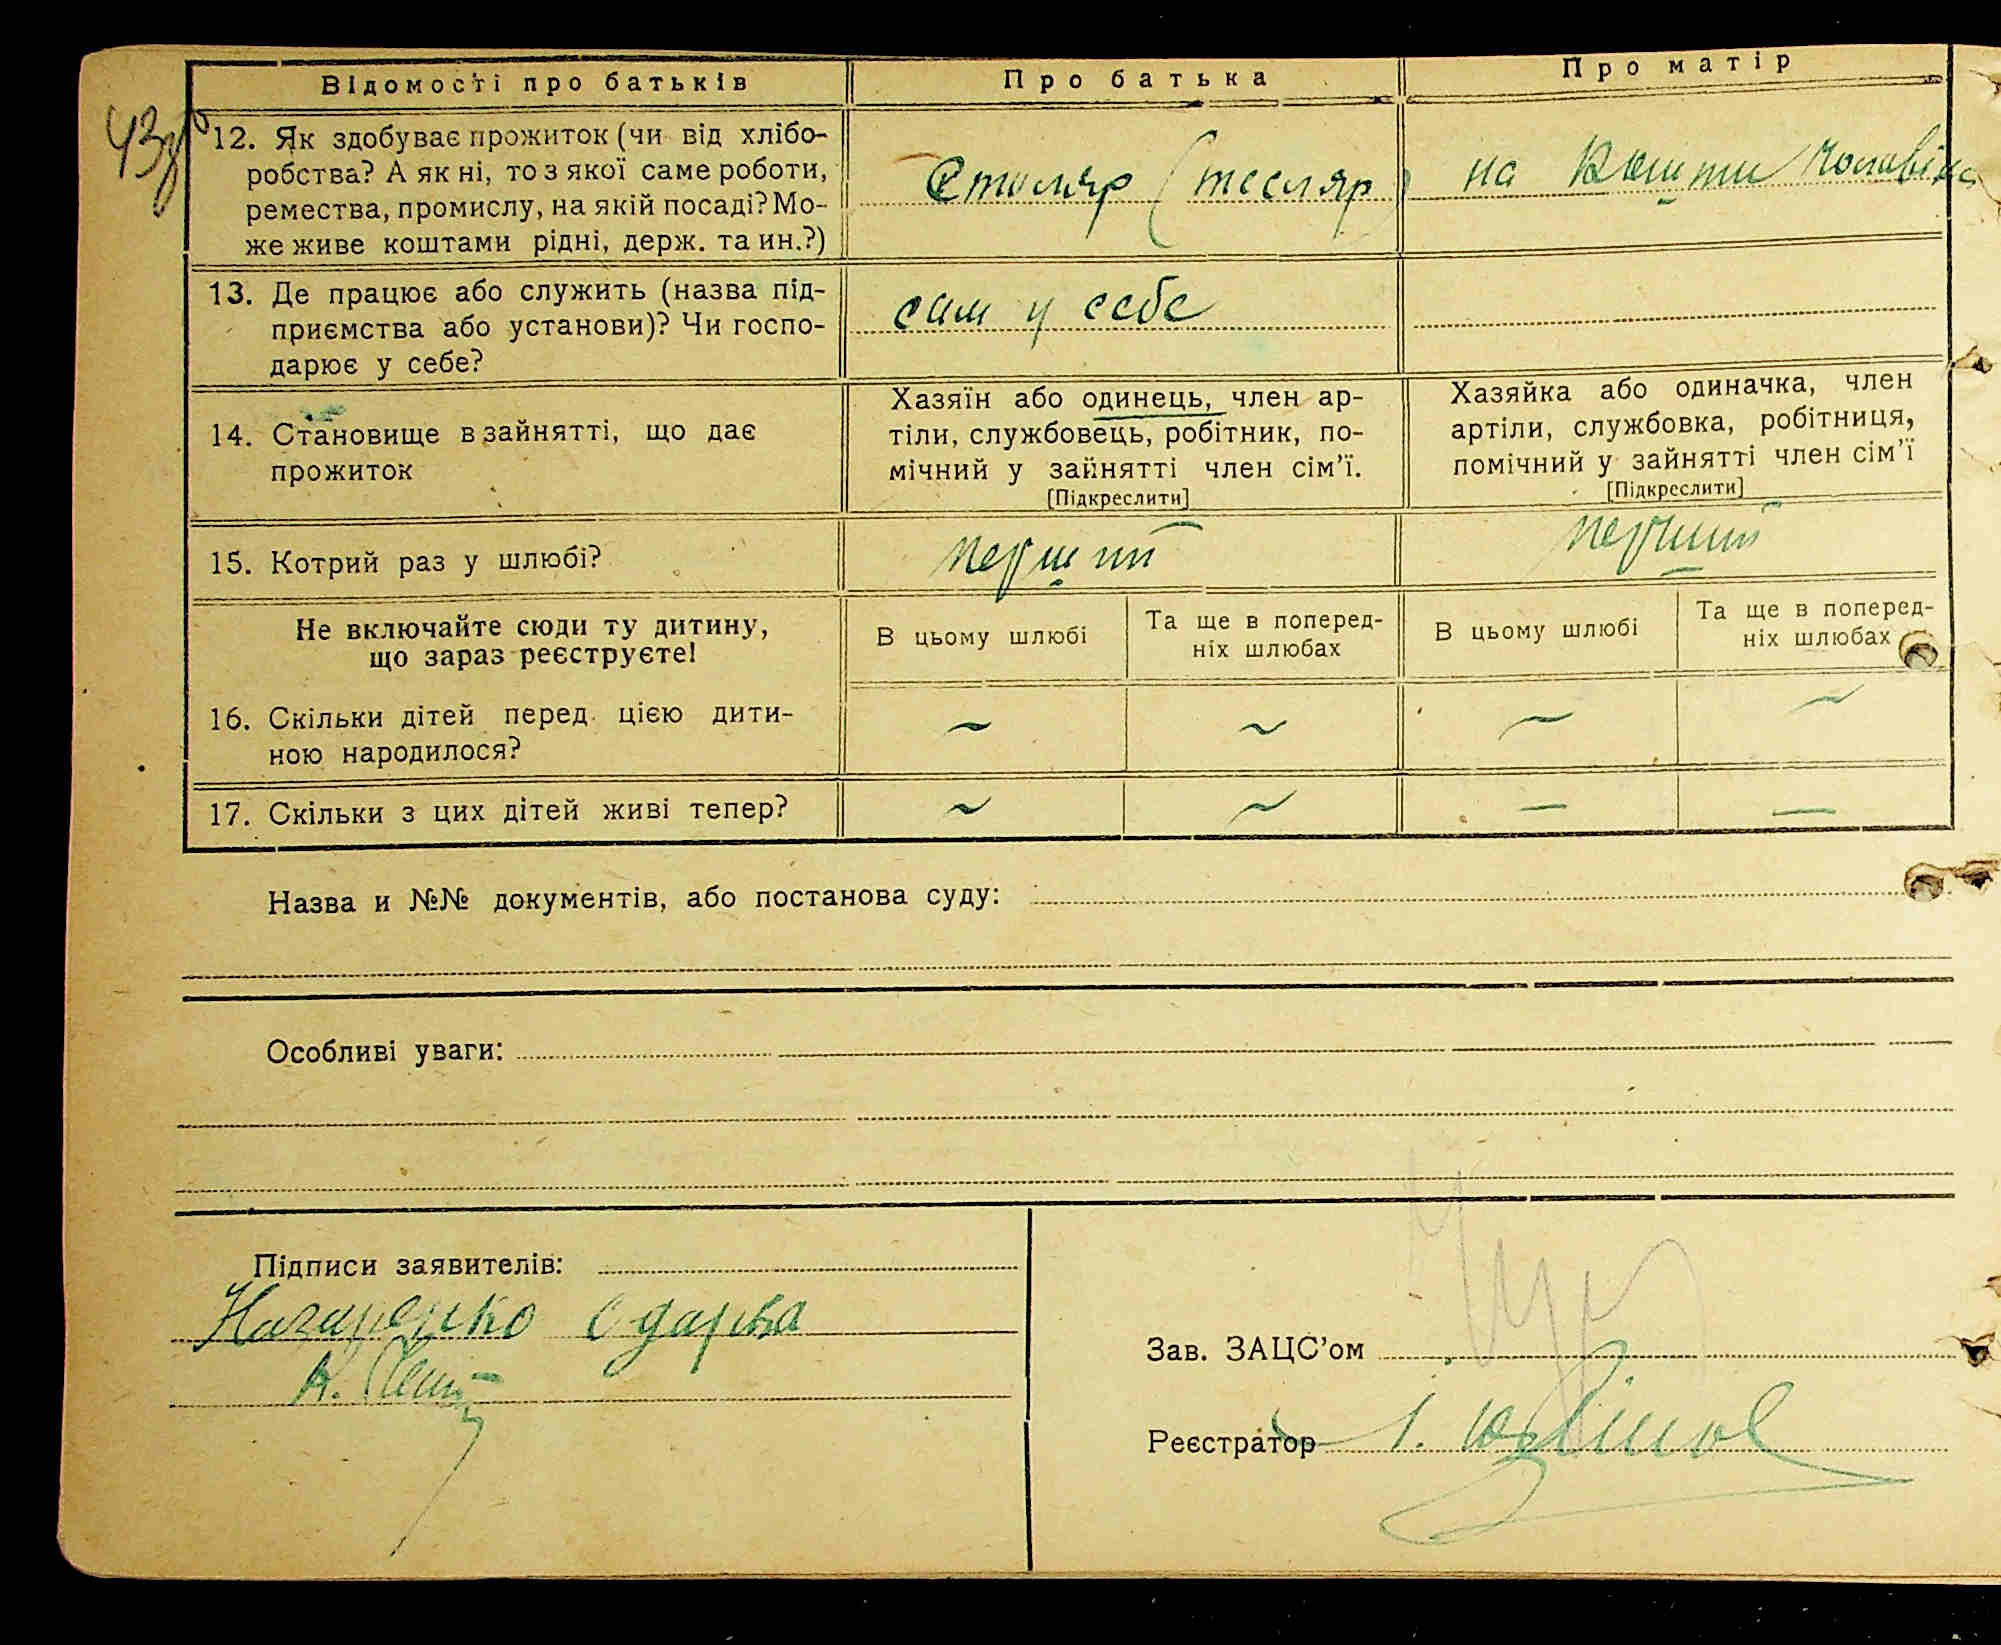 Відомості про батьків
Про батька
Про матір
12. Як здобуває прожиток (чи від хлібо-
робства? А як ні, то з якої саме роботи,
ремества, промислу, на якій посаді? Мо-
же живе коштами рідні, держ. та ин.?)
Столяр (тесляр)
на кошти чоловіка
13. Де працює або служить (назва під-
приємства або установи)? Чи госпо-
дарює у себе?
сам у себе
14. Становище в зайнятті, що дає
прожиток
Хазяїн або одинець, член ар-
тіли, службовець, робітник, по-
мічний у зайнятті член сім'ї.
[Підкреслити]
Хазяйка або одиначка, член
артіли, службовка, робітниця,
помічний у зайнятті член сім'ї
[Підкреслити]
15. Котрий раз у шлюбі?
перший
перший
Не включайте сюди ту дитину,
що зараз реєструєте!
В цьому шлюбі
Та ще в поперед-
ніх шлюбах
В цьому шлюбі
Та ще в поперед-
ніх шлюбах
16. Скільки дітей перед цією дити-
ною народилося?
~ ~ ~ ~
17. Скільки з цих дітей живі тепер?
~ ~ — —
Назва и №№ документів, або постанова суду:
Особливі уваги:
Підписи заявителів:
Назаренко Одарка
Зав. ЗАЦС'ом
Реєстратор